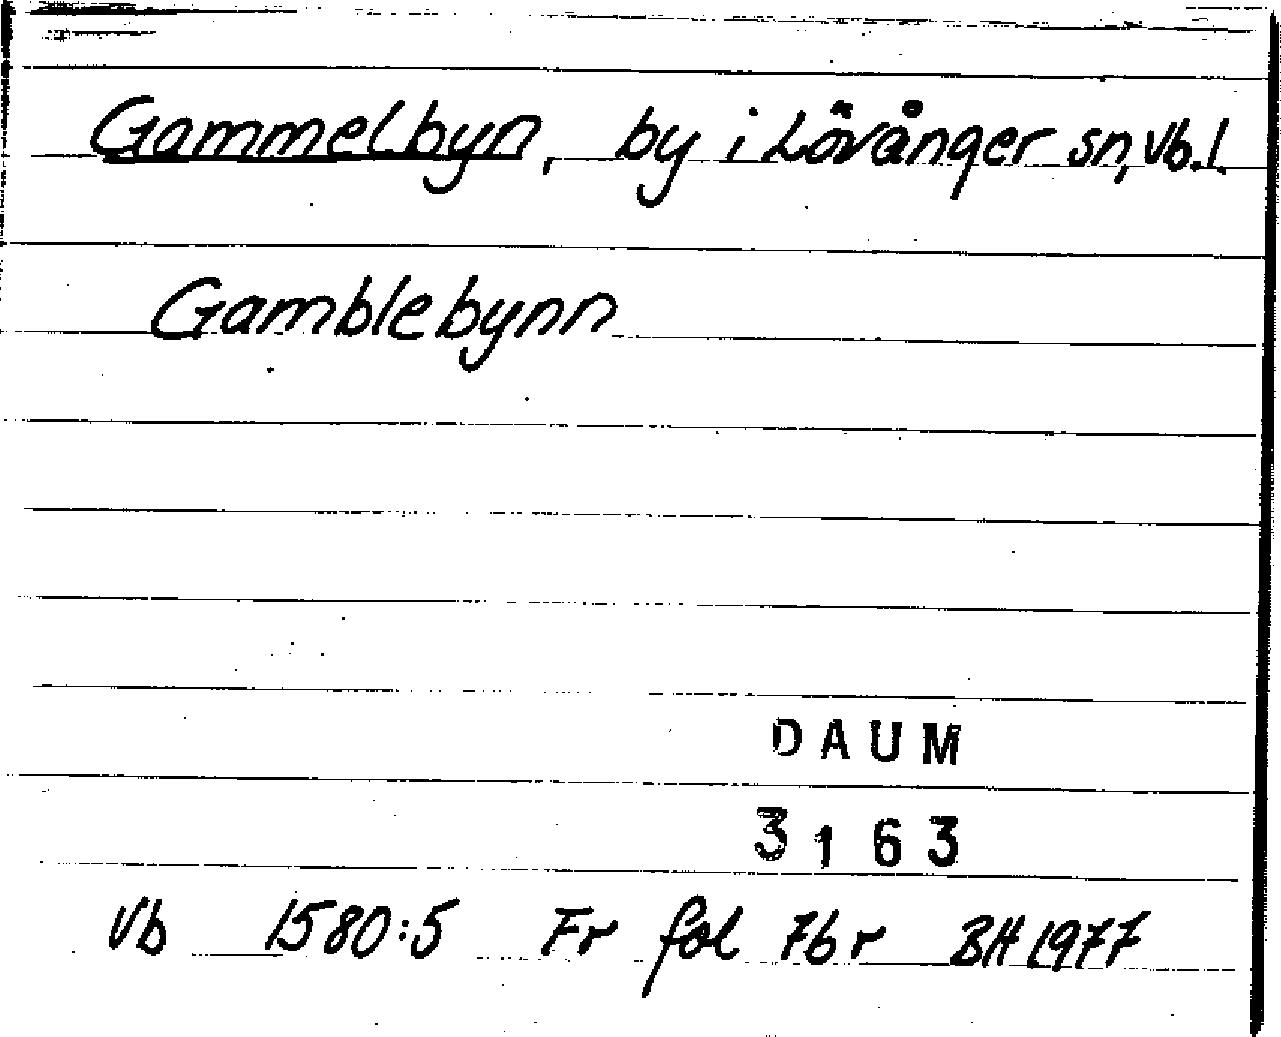 Gammelbyn, by i Lövånger sn, Vb. l.
Gamblebynn
DAUM
3163
Vb 1580:5 Fr fol 76 r BH 1977